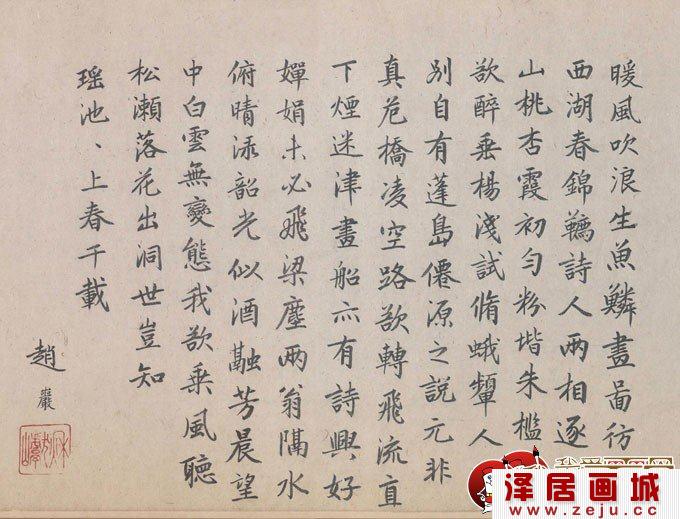 暖風吹浪生魚鱗畫啚彷
西湖春錦韉詩人兩相逐
山桃杏霞初勻粉堦朱檻
欲醉垂楊淺試脩蛾顰人
別自有蓬島僊源之說元非
真危橋凌空路欲轉飛流直
下煙迷津畫船亦有詩興好
嬋娟未必飛梁塵兩翁隔水
俯晴淥韶光似酒融芳晨望
中白雲無變態我欲乘風聽
松瀨落花出洞世豈知
瑶池、上春千載
趙巖
泽居画城
www.zeju.cc